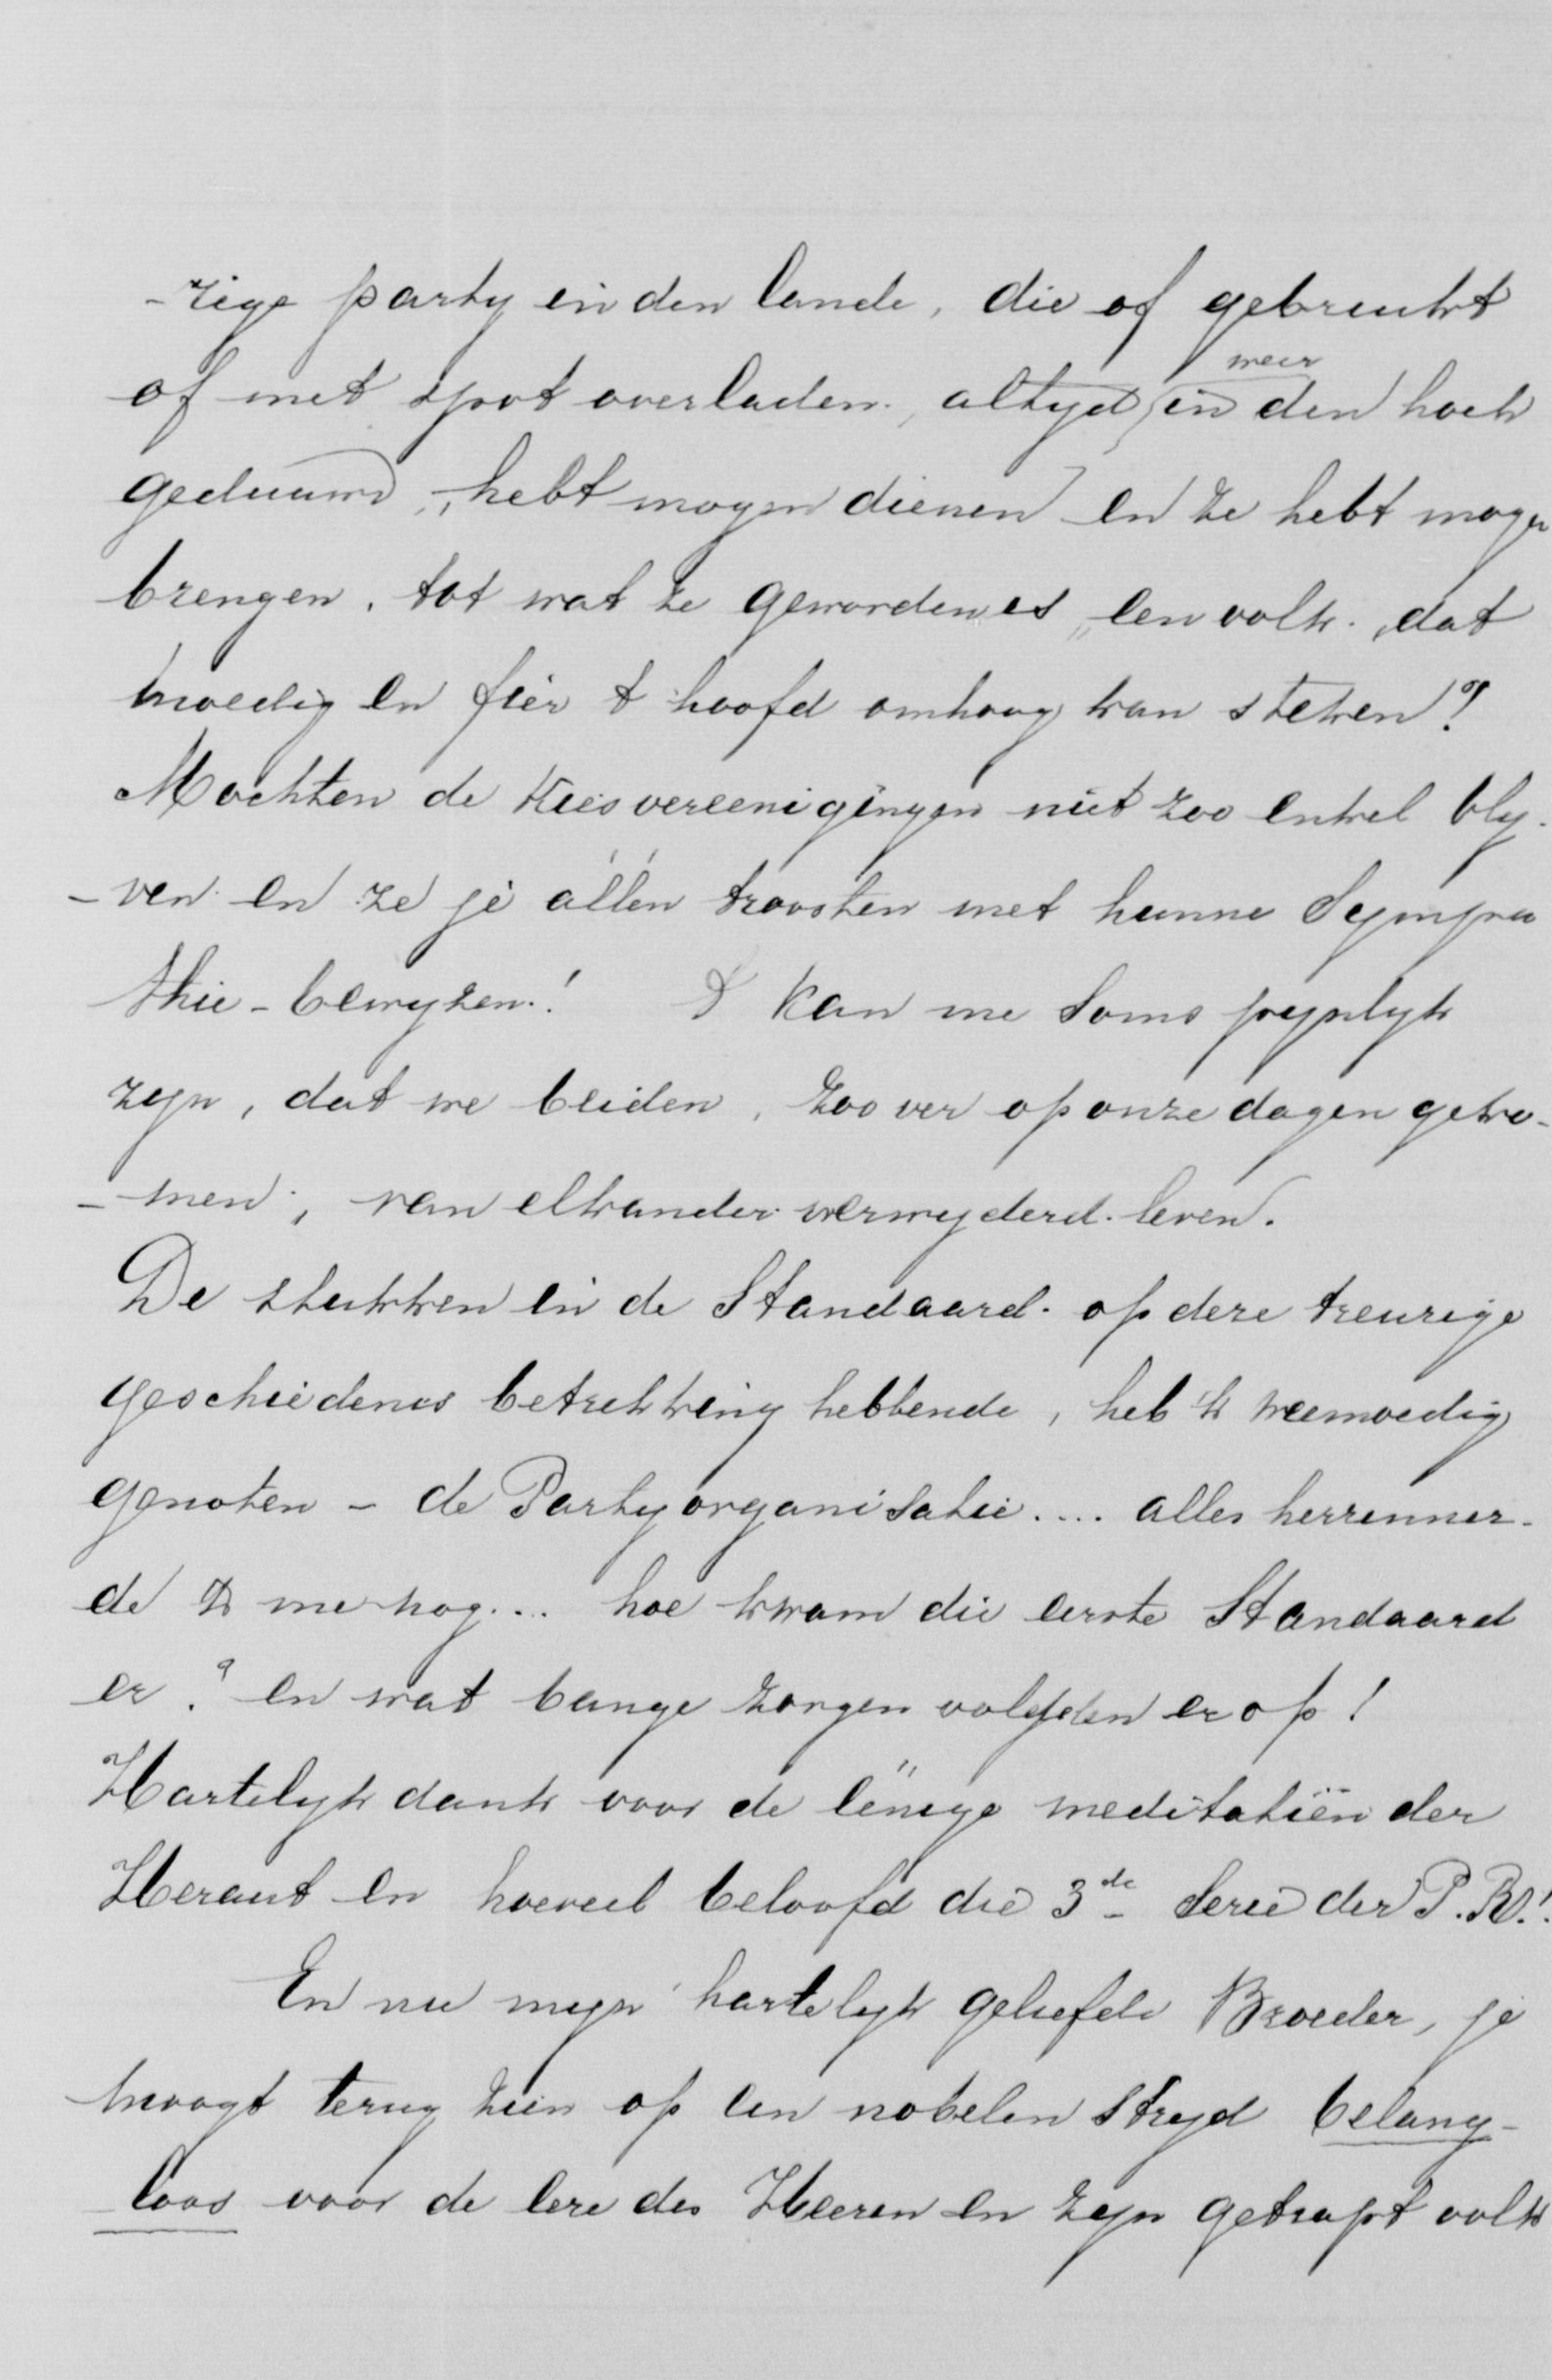 -zige party in den lande, die of gebruikt
of met spot overladen, altyd meer in den hoek
geduuwd, hebt mogen dienen en ze hebt mogen
brengen, tot wat ze geworden is, een volk, dat
moedig en fier 't hoofd omhoog kan steken!?
Mochten de Kiesvereenigingen niet zoo enkel bly-
-ven en ze je állen troosten met hunne Sympa
thie-bewyzen! 't Kan me soms pynlyk
zyn, dat we beiden, zoo ver op onze dagen geko-
-men, van elkander verwyderd leven.
De stukken in de Standaard op deze treurige
geschiedenis betrekking hebbende, heb 'k weemoedig
genoten - de Partyorganisatie.... alles herinner-
de 'k me nog... hoe kwam die eerste Standaard
er? en wat bange zorgen volgden er op!
Hartelyk dank voor de ïnnige meditatiën der
Heraut en hoeveel beloofd die 3de Serie der P. R.!
En nu myn hartelyk geliefde Broeder, je
moogt terug zien op een nobelen stryd belang-
loos voor de eere des Heeren en zyn getrapt volk